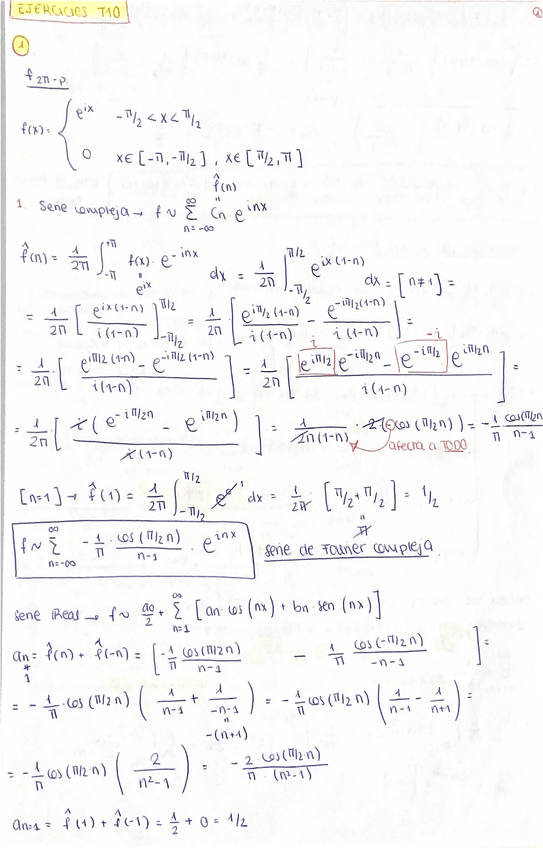 EJERCICIOS T10
1
f 2π-p.
f(x) = { e^{ix} -π/2 < x < π/2
0 x ∈ [-π, -π/2], x ∈ [π/2, π]
1. Serie compleja → f ~ ∑_{n=-∞}^{∞} Cn · e^{inx}
f̂(n)
f̂(n) = 1/2π ∫_{-π}^{+π} f(x) · e^{-inx} dx = 1/2π ∫_{-π/2}^{π/2} e^{ix(1-n)} dx = [n≠1] =
e^{ix}
= 1/2π [ e^{ix(1-n)} / i(1-n) ]_{-π/2}^{π/2} = 1/2π [ e^{iπ/2(1-n)} / i(1-n) - e^{-iπ/2(1-n)} / i(1-n) ] =
i -i
= 1/2π · [ e^{iπ/2(1-n)} - e^{-iπ/2(1-n)} / i(1-n) ] = 1/2π [ e^{iπ/2} e^{-iπ/2n} - e^{-iπ/2} e^{iπ/2n} / i(1-n) ] =
= 1/2π · [ i(e^{-iπ/2n} - e^{iπ/2n}) / i(1-n) ] = 1/2π(1-n) · 2(-cos(π/2n)) = -1/π cos(π/2n)/n-1
afecta a TODO.
[n=1] → f̂(1) = 1/2π ∫_{-π/2}^{π/2} e^0 1 dx = 1/2π · [π/2 + π/2] = 1/2
π
f ~ ∑_{n=-∞}^{∞} -1/π · cos(π/2n)/n-1 · e^{inx} serie de Fourier compleja.
serie Real → f ~ a0/2 + ∑_{n=1}^{∞} [an · cos(nx) + bn · sen(nx)]
an = f̂(n) + f̂(-n) = [ -1/π cos(π/2n)/n-1 - 1/π cos(-π/2n)/-n-1 ] =
≠
1
= -1/π · cos(π/2n) ( 1/n-1 + 1/-n-1 ) = -1/π cos(π/2n) ( 1/n-1 - 1/n+1 ) =
-(n+1)
= -1/π cos(π/2·n) ( 2/n²-1 ) = -2·cos(π/2·n)/π·(n²-1)
an=1 = f̂(1) + f̂(-1) = 1/2 + 0 = 1/2